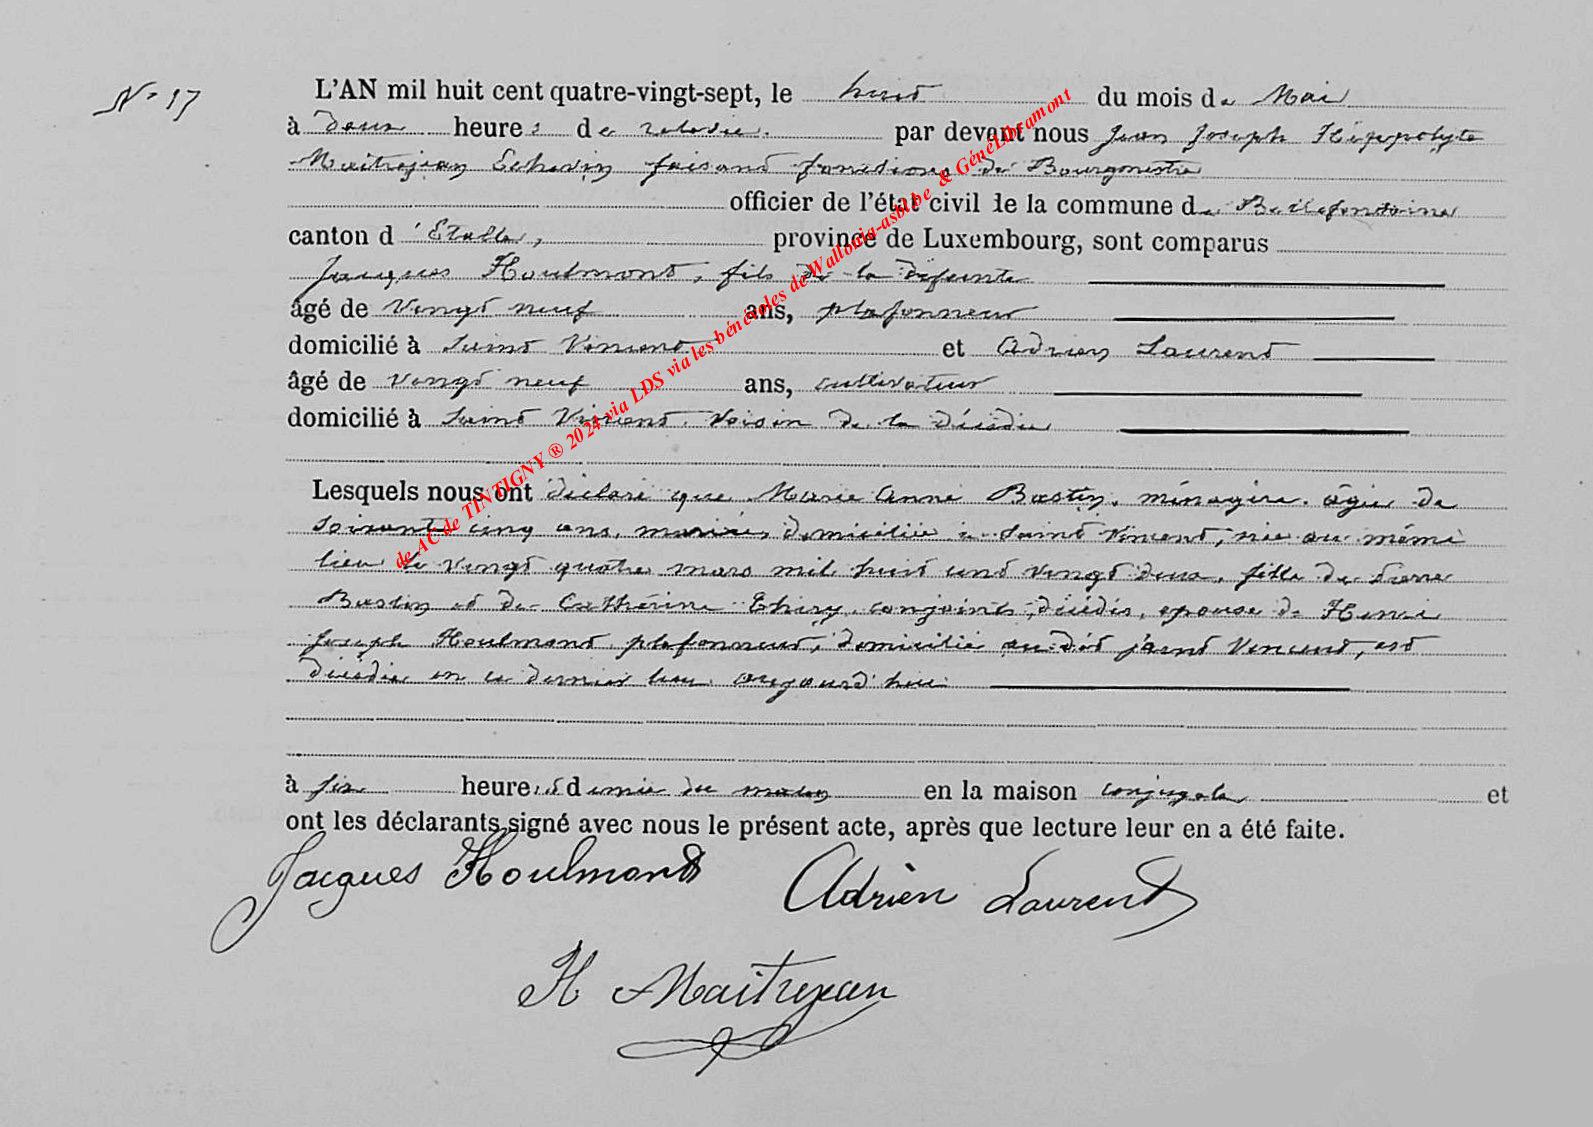 N° 17
L'AN mil huit cent quatre-vingt-sept, le huit du mois de Mai
à deux heures de relevée. par devant nous Jean Joseph Hippolyte
Maitrejean Echevin faisant fonctions de Bourgmestre
officier de l'état civil de la commune de Bellefontaine
canton d'Etalle, province de Luxembourg, sont comparus
Jacques Houlmont, fils de la défunte
âgé de vingt neuf ans, plafonneur
domicilié à Saint Vincent et Adrien Laurent
âgé de vingt neuf ans, cultivateur
domicilié à Saint Vincent voisin de la décédée
Lesquels nous ont déclaré que Marie Anne Bastin, ménagère, âgée de
soixante cinq ans, mariée, domiciliée à Saint Vincent, née au même
lieu le vingt quatre mars mil huit cent vingt deux, fille de Pierre
Bastin et de Cathérine Thiry, conjoints, décédés, épouse de Henri
Joseph Houlmont plafonneur, domicilié au dit Saint Vincent, est
décédée en ce dernier lieu aujourd'hui
à six heures et demie du matin en la maison conjugale et
ont les déclarants signé avec nous le présent acte, après que lecture leur en a été faite.
Jacques Houlmont Adrien Laurent
H Maitrejean
de AC de TINTIGNY ® 2024 via LDS via les bénévoles de Wallonia-asbl.be & GénéLibramont